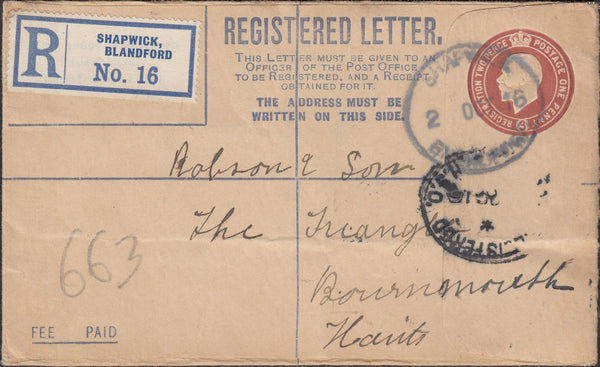 R
SHAPWICK,
BLANDFORD
No. 16
REGISTERED LETTER.
THIS LETTER MUST BE GIVEN TO AN
OFFICER OF THE POST OFFICE
TO BE REGISTERED, AND A RECEIPT
OBTAINED FOR IT.
THE ADDRESS MUST BE
WRITTEN ON THIS SIDE.
REGISTRATION TWO PENCE
POSTAGE ONE PENNY
2
16
Robson & Son
The Triangle
Bournmouth
Hants
663
FEE PAID